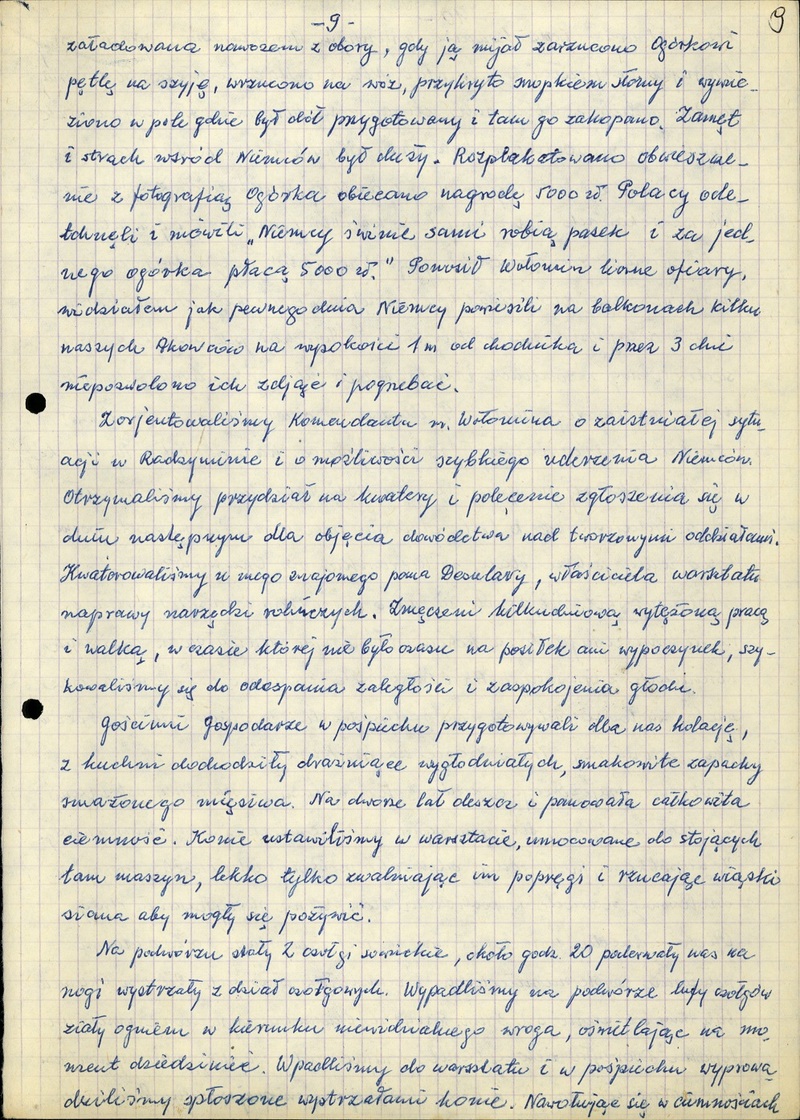 -9-
9
załadowana nawozem z obory, gdy ją mijał zarzucono Ogórkowi
pętlę na szyję, wrzucono na wóz, przykryto snopkiem słomy i wywie-
ziono w pole gdzie był dół przygotowany i tam go zakopano. Zamęt
i strach wśród Niemców był duży. Rozplakatowano obwieszcze-
nie z fotografią Ogórka obiecano nagrodę 5000 zł. Polacy ode-
tchnęli i mówili „Niemcy świnie sami robią pasek i za jed-
nego ogórka płacą 5000 zł." Ponosił Wołomin liczne ofiary,
widziałem jak pewnego dnia Niemcy powiesili na balkonach kilku
naszych Akowców na wysokości 1 m od chodnika i przez 3 dni
niepozwolono ich zdjąć i pogrzebać.
Zorjentowaliśmy Komendanta m. Wołomina o zaistniałej sytu-
acji w Radzyminie i o możliwości szybkiego uderzenia Niemców.
Otrzymaliśmy przydział na kwatery i polecenie zgłoszenia się w
dniu następnym dla objęcia dowództwa nad tworzonymi oddziałami.
Kwaterowaliśmy u mego znajomego pana Desulavy, właściciela warsztatu
naprawy narzędzi rolniczych. Zmęczeni kilkudniową wytężoną pracą
i walką, w czasie której nie było czasu na posiłek ani wypoczynek, szy-
kowaliśmy się do odespania zaległości i zaspokojenia głodu.
Gościnni gospodarze w pośpiechu przygotowywali dla nas kolację,
z kuchni dochodziły drażniące wygłodniałych, smakowite zapachy
smażonego mięsiwa. Na dworze lał deszcz i panowała całkowita
ciemność. Konie ustawiliśmy w warsztacie, umocowane do stojących
tam maszyn, lekko tylko zwalniając im popręgi i rzucając wiązki
siana aby mogły się pożywić.
Na podwórzu stały 2 czołgi sowieckie, około godz. 20 poderwały nas na
nogi wystrzały z dział czołgowych. Wypadliśmy na podwórze lufy czołgów
ziały ogniem w kierunku niewidzialnego wroga, oświetlając na mo-
ment dziedziniec. Wpadliśmy do warsztatu i w pośpiechu wyprowa-
dziliśmy spłoszone wystrzałami konie. Nawołując się w ciemnościach